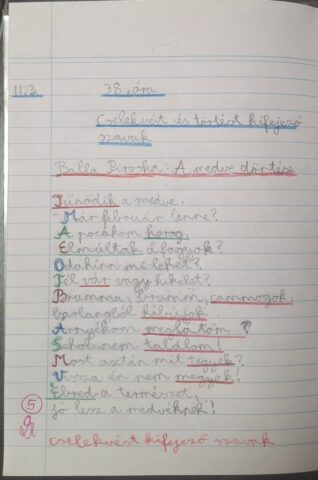 11.3. 38. óra
Cselekvést és történést kifejező
szavak
Balla Piroska: A medve döntése
Tűnődik a medve.
Már február lenne?
A pocakom korog,
Elmúltak a fagyok?
Odakinn mi lehet?
Tél vár vagy kikelet?
Brumma, brumm, cammogok,
barlangból kilógok!
Árnyékom meglátom?
Sehol nem találom!
Most aztán mit tegyek?
Vissza én nem megyek!
Ébred a természet,
jó lesz a medvéknek!
5
cselekvést kifejező szavak